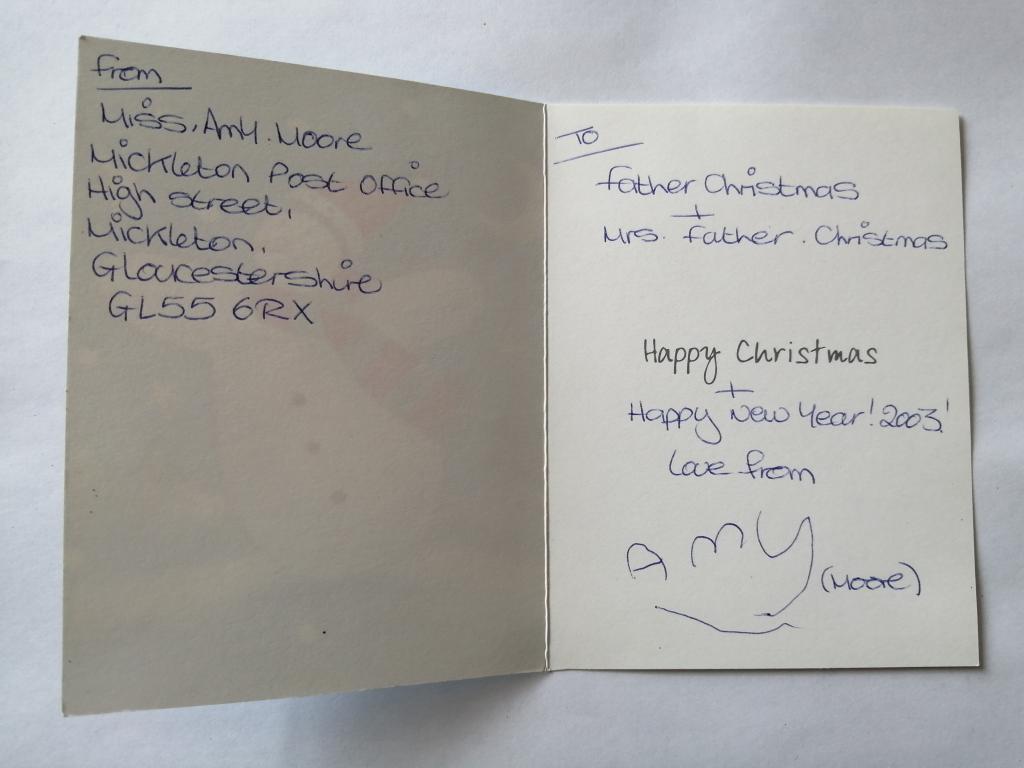 From
Miss. Amy. Moore
Mickleton Post Office
High Street,
Mickleton,
Gloucestershire
GL55 6RX
To
Father Christmas
+
Mrs. Father. Christmas
Happy Christmas
+
Happy New Year! 2003!
Love from
AMY
(Moore)